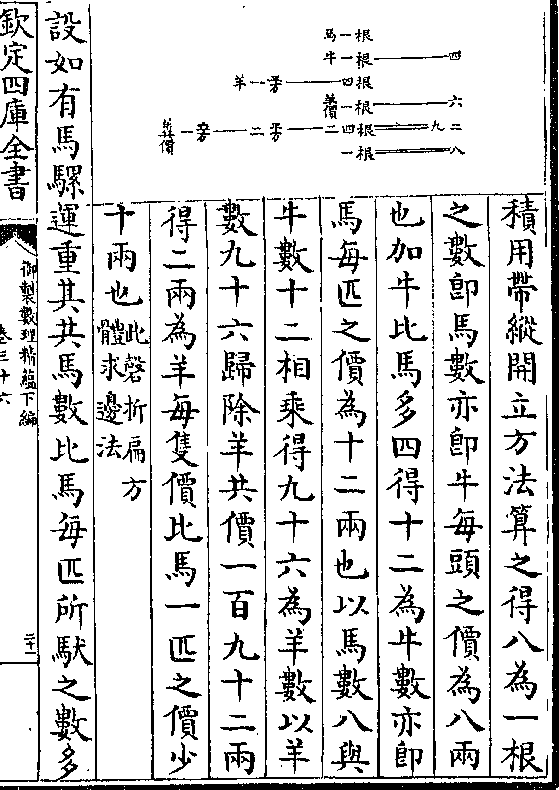 馬一根
牛一根——四
羊一方——四根
共價一根——六
羊共價一立方——二平方——二四根══九二
一根══八
積用帶縱開立方法算之得八為一根
之數即馬數亦即牛每頭之價為八兩
也加牛比馬多四得十二為牛數亦即
馬每匹之價為十二兩也以馬數八與
牛數十二相乘得九十六為羊數以羊
數九十六歸除羊共價一百九十二兩
得二兩為羊每隻價比馬一匹之價少
十兩也此磬折扁方體求邊法
設如有馬騾運重其共馬數比馬每匹所馱之數多
欽定四庫全書
御製數理精蘊下編
卷三十六
二十一